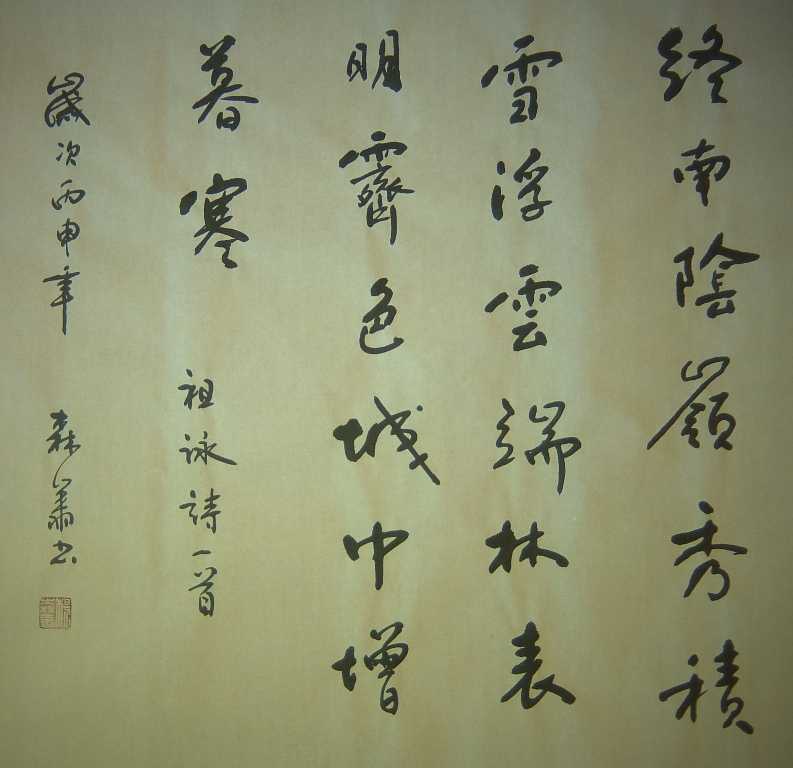 終南陰嶺秀積
雪浮雲端林表
明霽色城中增
暮寒
祖詠詩一首
歲次丙申年
森
書